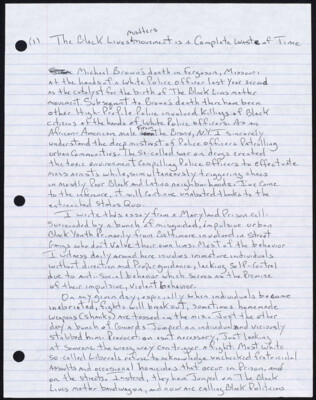 matters
(1) The Black Lives movement is a Complete Waste of Time
Michael Brown's death in Ferguson, Missouri
at the hands of a White Police officer last year served
as the catalyst for the birth of The Black Lives matter
movement. Subsequent to Brown's death there have been
other High Profile Police involved Killings of Black
citizens at the hands of White Police officers. As an
African American male from the Bronx, N.Y. I sincerely
understand the deep mistrust of Police officers Patrolling
urban Communities. The so-called war on drugs created
the toxic environment compelling Police officers to effectuate
mass arrests while, simultaneously triggering chaos
in mostly Poor Black and Latino neighborhoods. I've come
to the inference, it will continue unabated thanks to the
entrenched status Quo.
I write this essay from a Maryland Prison cell.
Surrounded by a bunch of misguided, impulsive urban
Black Youth Primarily from Baltimore involved in Street
Gangs who don't value their own lives. Most of the behavior
I witness daily around here involves immature individuals
without direction and Proper guidance, lacking Self-Control
due to anti-Social behavior which serves as the Premise
of their impulsive, violent behavior.
On any given day, especially when individuals become
inebriated, fights will break out, sometimes homemade
weapons (shanks) are tossed in the mix. Just the other
day a bunch of Cowards Jumped an individual and viciously
stabbed him. Provocation isn't necessary, Just looking
at someone the wrong way can trigger a fight. Most White
so-called Liberals refuse to acknowledge unchecked fratricidal
Assaults and occasional homicides that occur in Prison, and
on the streets. Instead, they have Jumped on The Black
Lives matter bandwagon, and now are calling Black Politicians